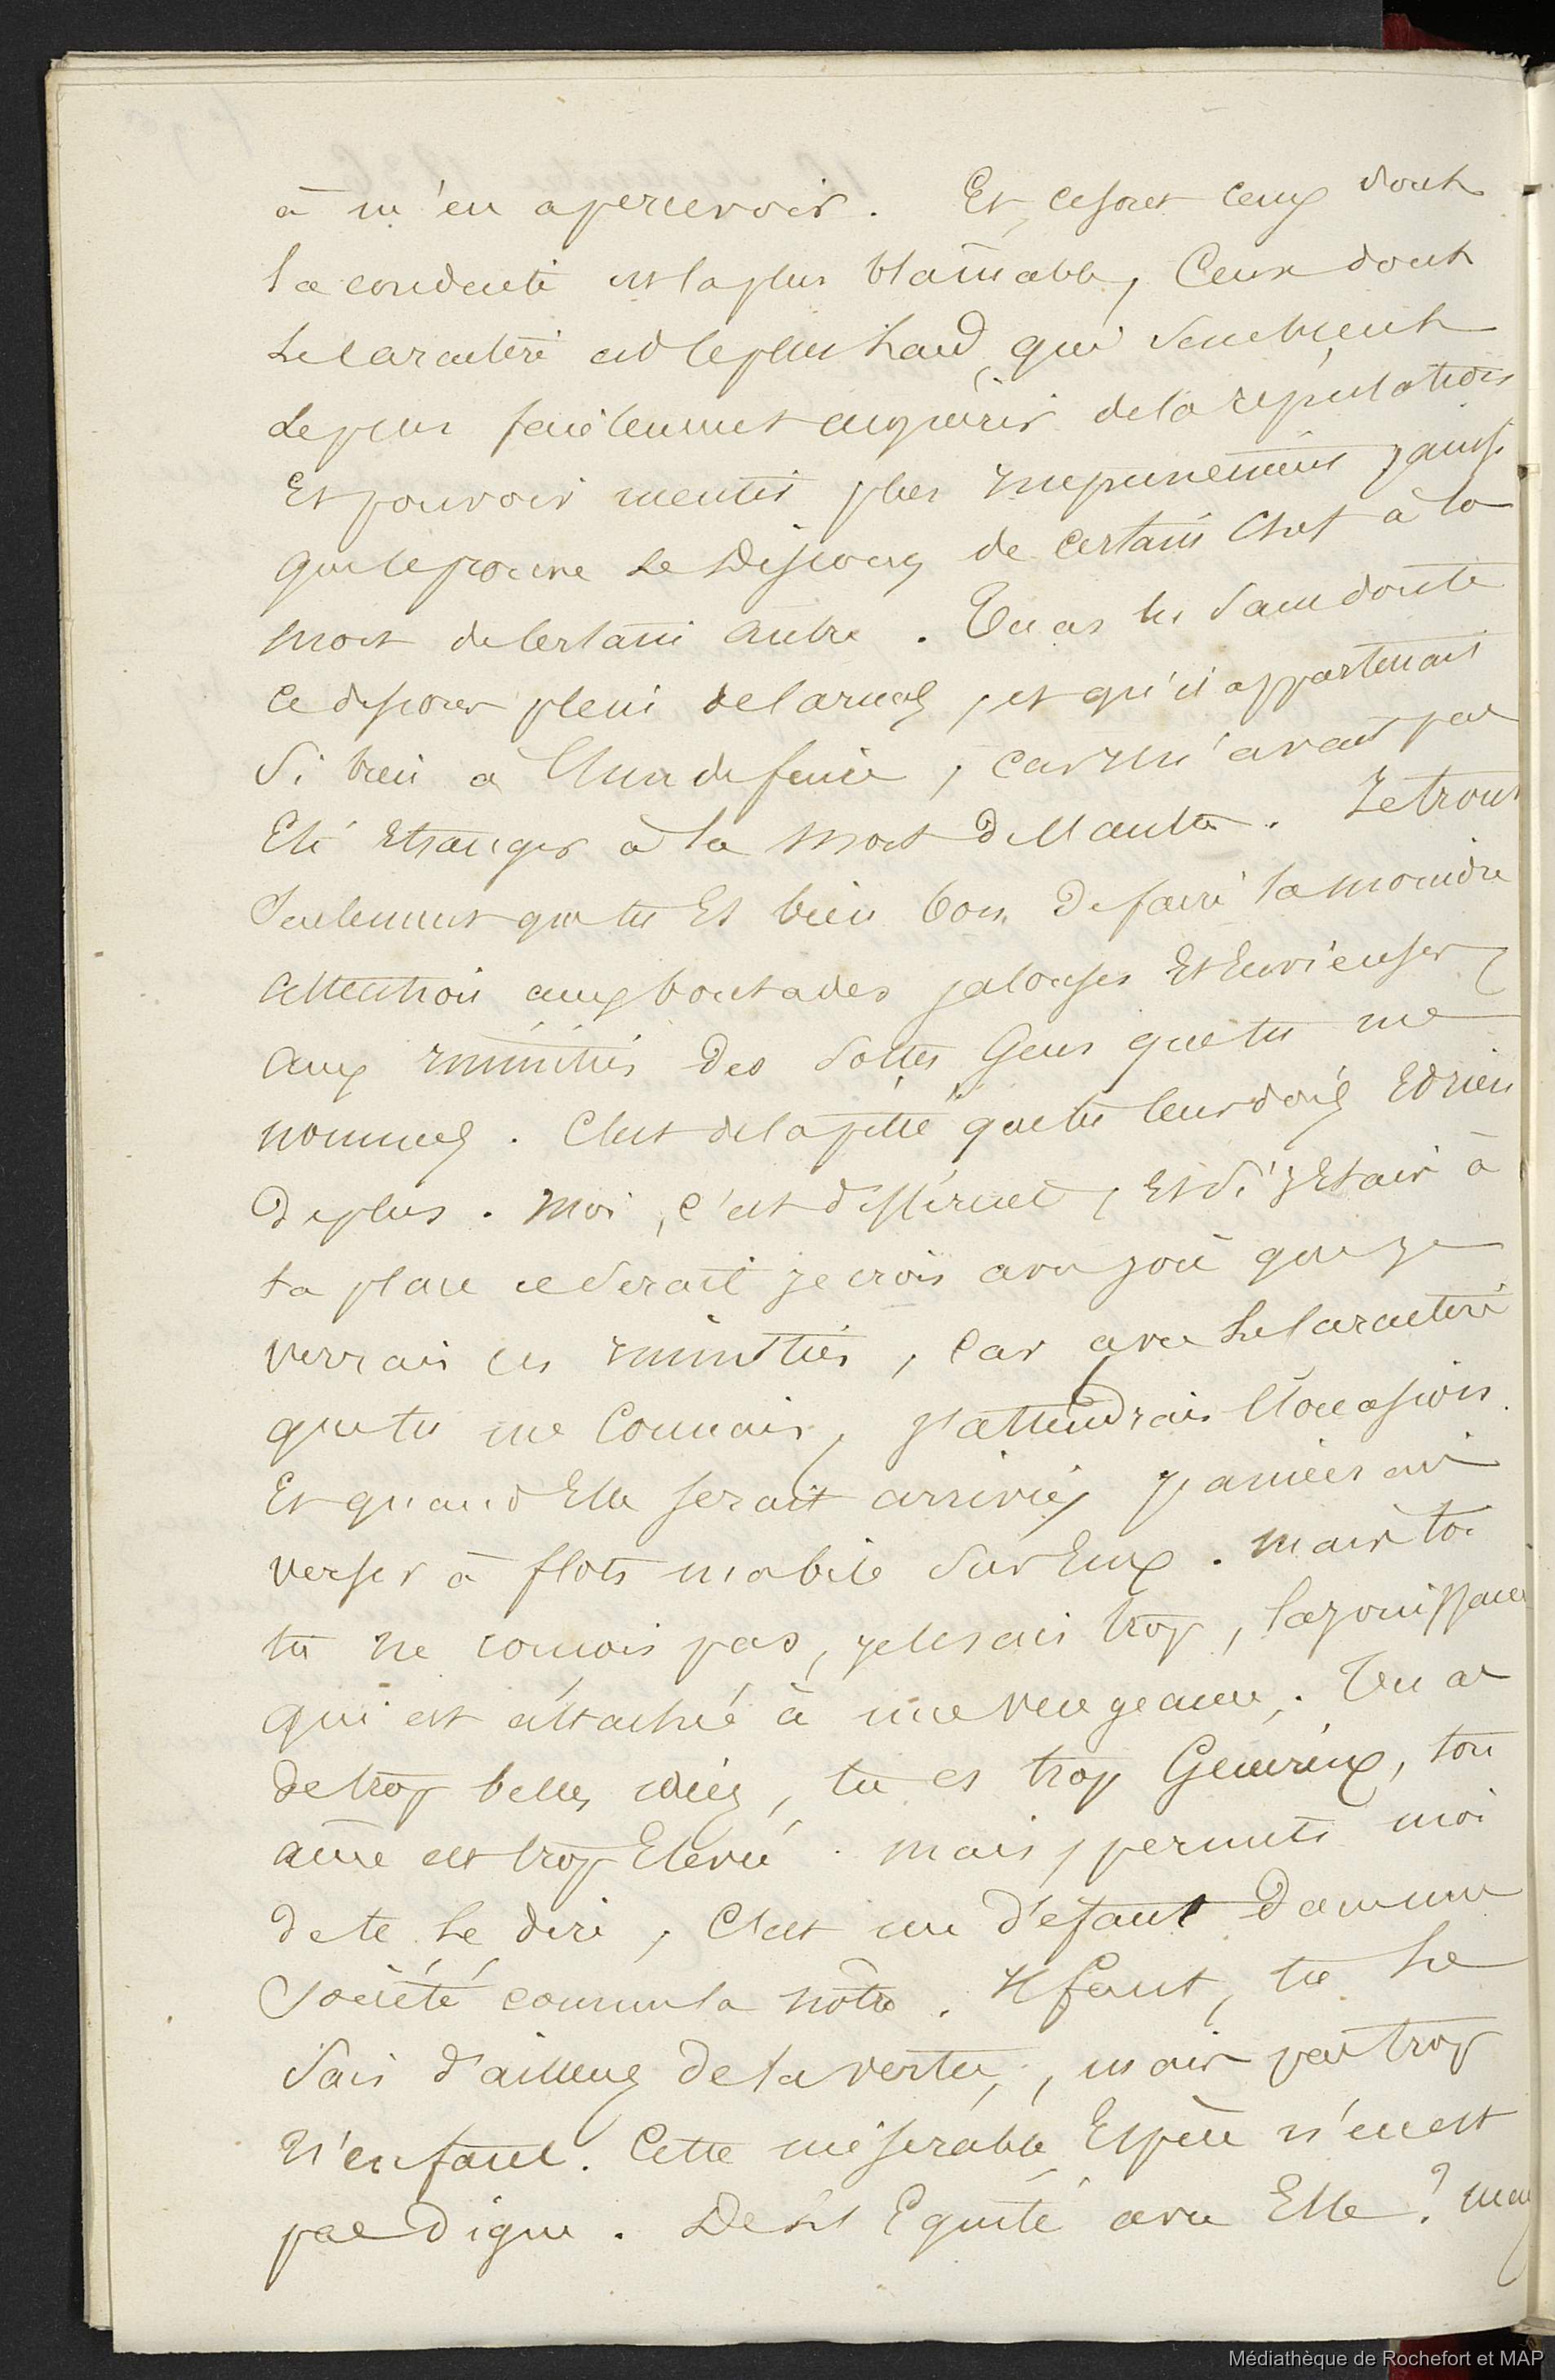 à m'en apercevoir. Et ce sont ceux dont
la conduite est la plus blâmable, Ceux dont
le caractère est le plus laid, qui semblent
le plus facilement acquérir de la réputation
Et pouvoir mentir plus impunément
que le prouve le Discours de certain Chef à la
mort de certain autre. Tu as lu sans doute
ce discours plein de larmes, et qu'il appartenait
si bien à l'un de faire, car il n'avait pas
Eté Etranger à la mort de l'autre. Je trouve
seulement que tu Es bien bon de faire la moindre
attention aux boutades jalouses Et Envieuses
aux inimitiés des sottes Gens que tu me
nommes. C'est de la pitié que tu leur dois Et rien
de plus. Moi, c'est différent, Et si j'Etais à
ta place ce serait je crois avec joie que je
verrais ces inimitiés, Car avec le caractère
que tu me Connais, j'attendrais l'occasion.
Et quand Elle serait arrivée, j'aimerais
verser à flots ma bile sur Eux. Mais toi
tu ne connois pas, je le sais trop, la jouissance
qui est attachée à une vengeance. Tu as
de trop belles idées, tu es trop Généreux, ton
âme est trop Elevée. Mais, permets moi
de te le dire, C'est un défaut Dans une
société comme la nôtre. Il faut, tu le
sais d'ailleurs de la vertu, mais pas trop
n'en faut. Cette misérable Espèce n'en est
pas Digne. De l'Equité avec Elle? mais
Médiathèque de Rochefort et MAP